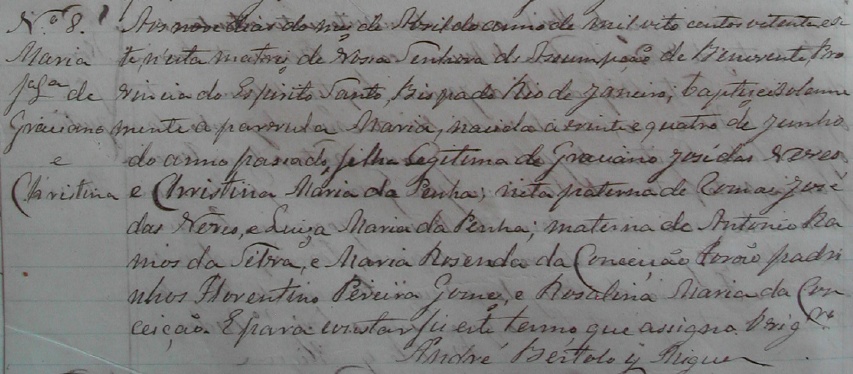 Nº 8. Aos nove dias do mez de Abril do anno de mil oito centos oitenta e se
Maria te, n'esta matriz de Nossa Senhora da Assumpção de Benevente, Pro
fª lª de vincia do Espirito Santo, Bispado Rio de Janeiro; baptisei solemne
Graciano mente a parvula Maria, nascida a vinte e quatro de Junho
e do anno passado, filha legitima de Graciano José das Neves
Christina e Christina Maria da Penha; neta paterna de Tomas José
das Neves, e Luiza Maria da Penha; materna de Antonio Ra
mos da , e Maria Rosenda da Conceição. Forão padri
nhos Florentino Pereira Gomes, e Rosalina Maria da Con
ceição. E para constar fiz este termo que assigno.
André